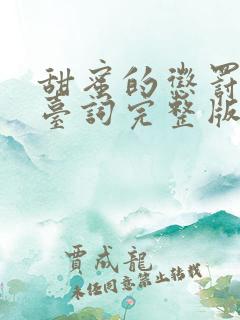 甜蜜的懲罰
臺詞完整版
賈成龍
未經同意禁止轉載